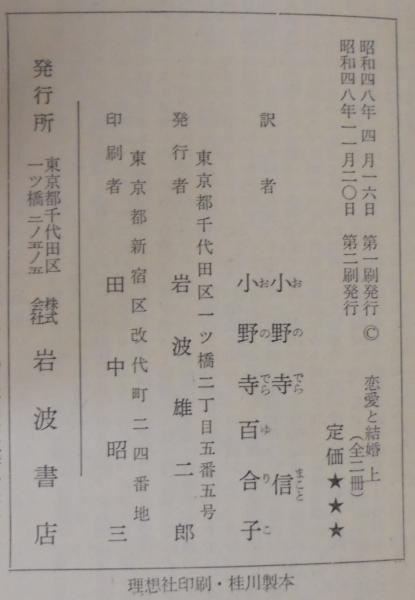 昭和四八年 四月一六日 第一刷発行 ©
昭和四八年一一月二〇日 第二刷発行
恋愛と結婚 上
(全二冊)
定価★★★
訳者
小野寺 信
おのでら まこと
小野寺百合子
おのでらゆりこ
東京都千代田区一ツ橋二丁目五番五号
発行者 岩波雄二郎
東京都新宿区改代町二四番地
印刷者 田中昭三
発行所
東京都千代田区
一ツ橋二ノ五ノ五
株式
会社
岩波書店
理想社印刷・桂川製本